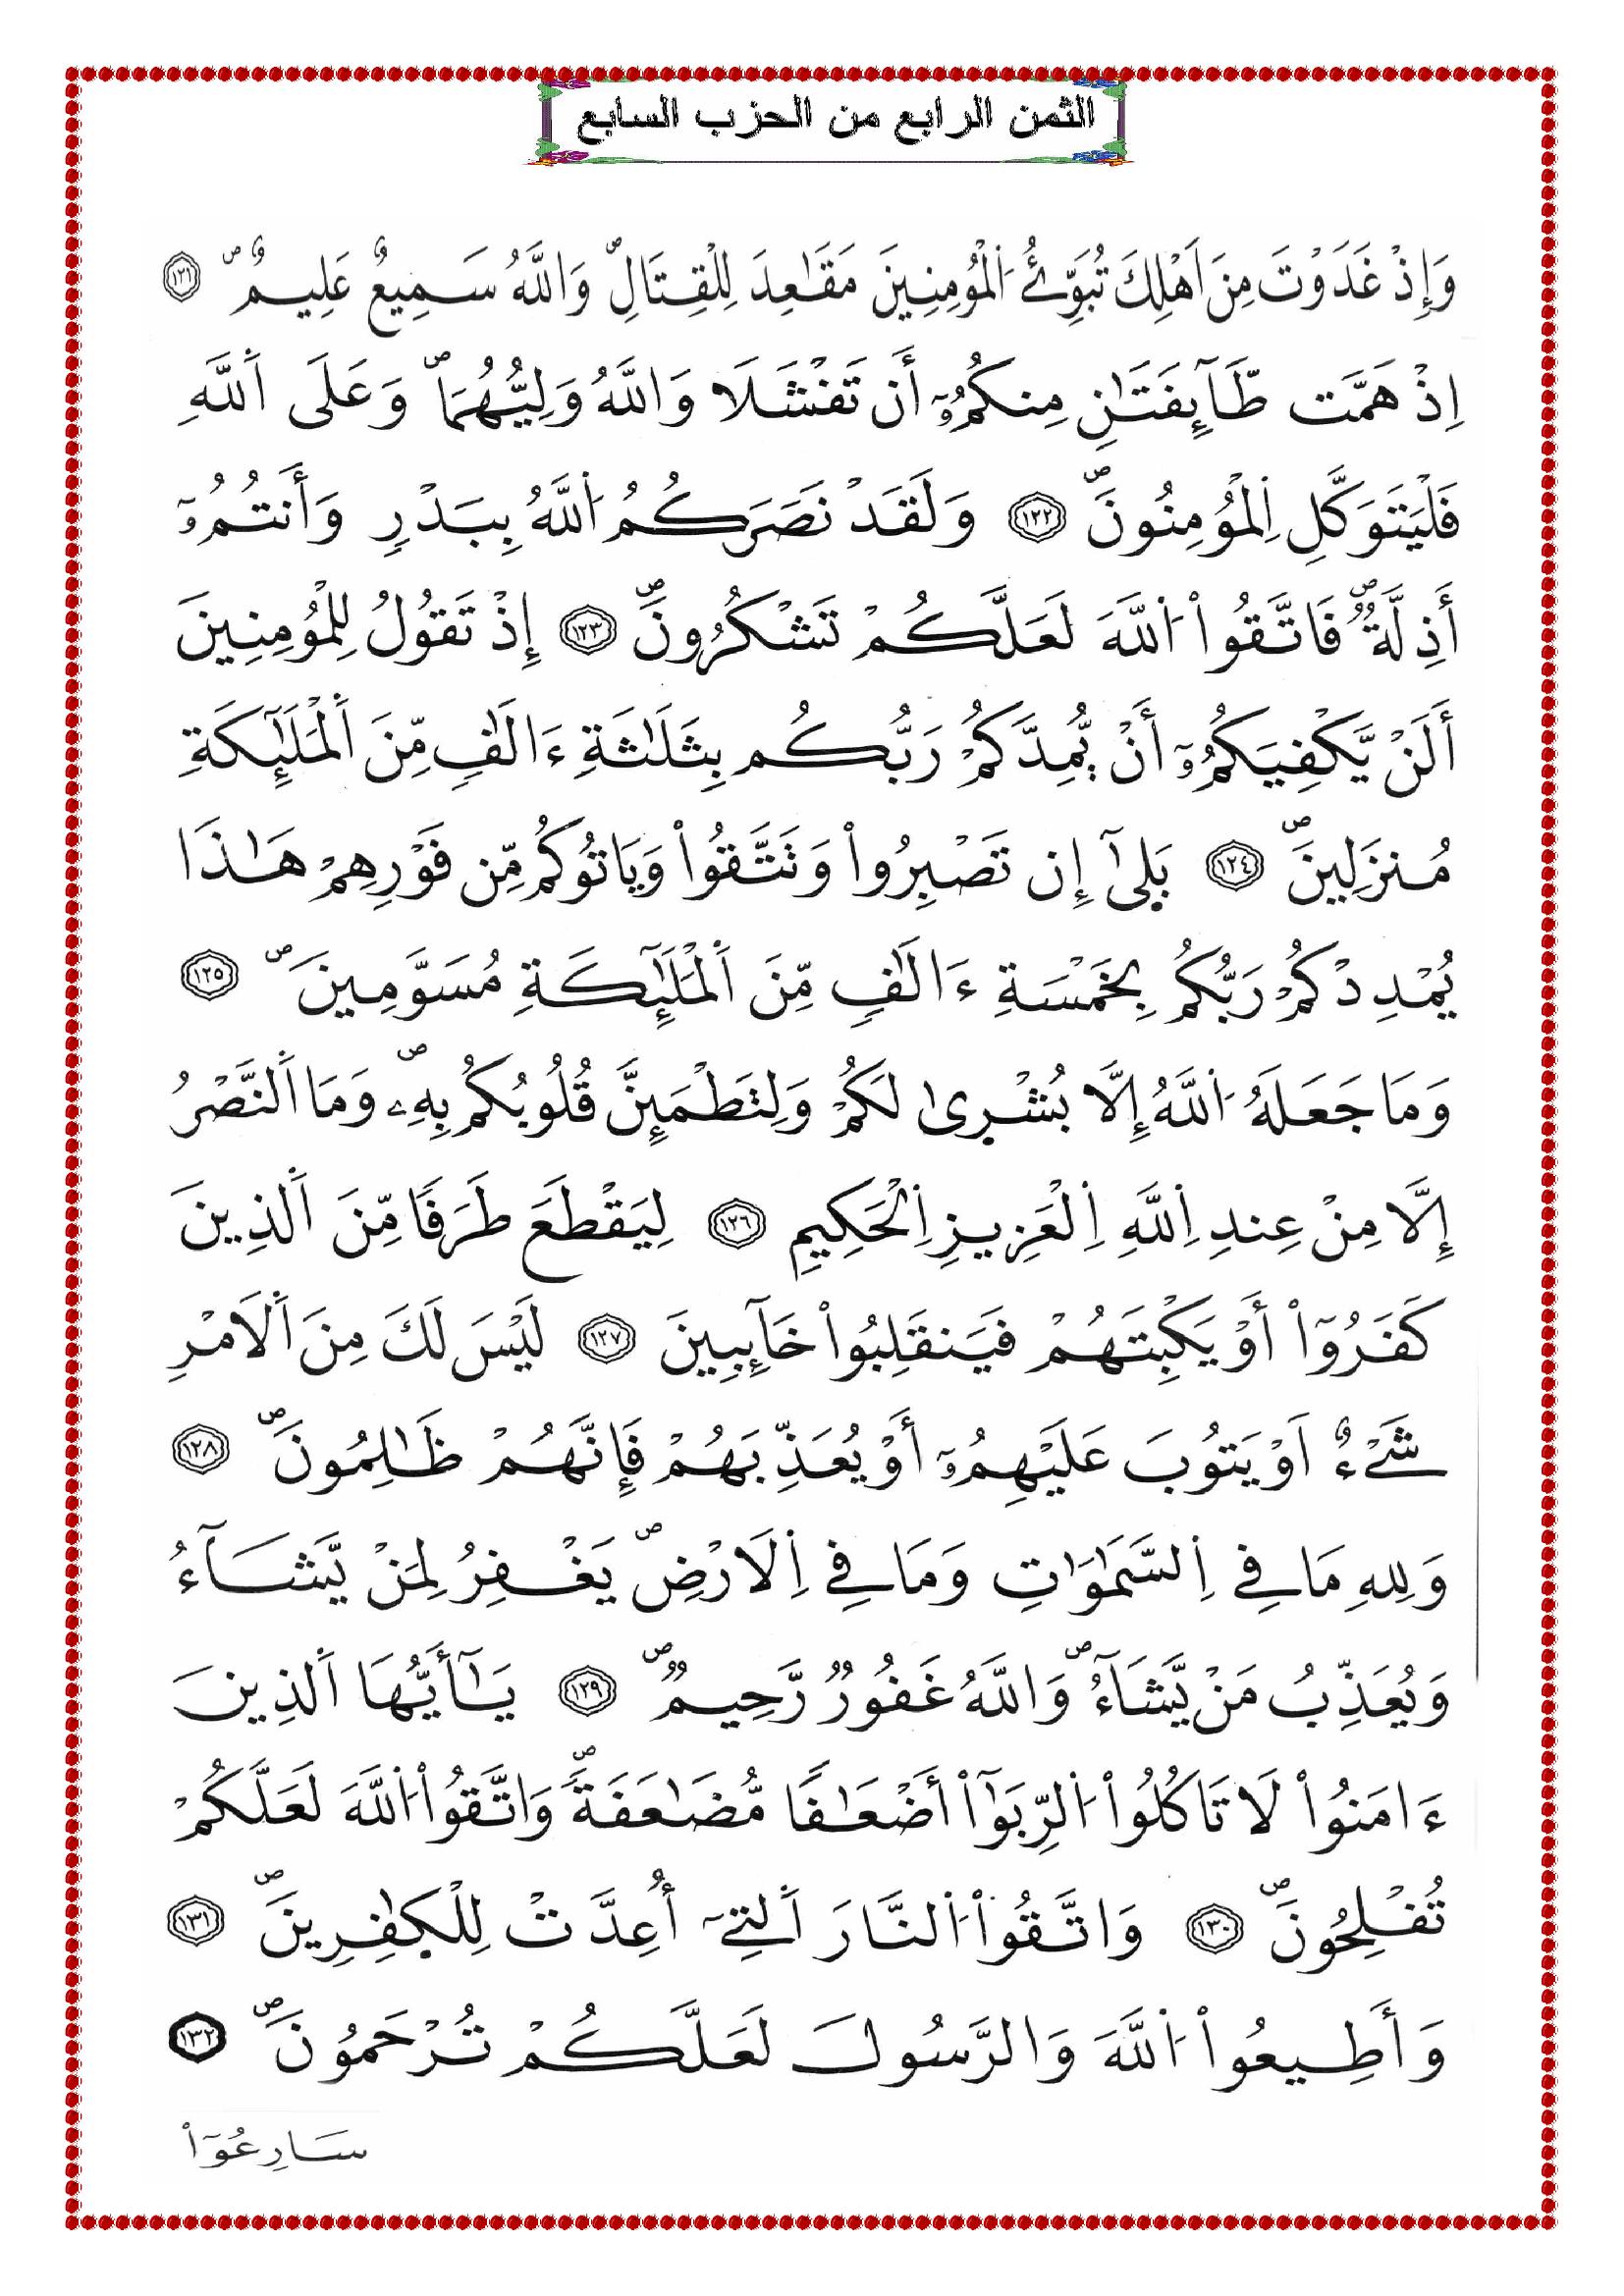 الثمن الرابع من الحزب السابع
وَإِذْ غَدَوْتَ مِنَ اَهْلِكَ تُبَوِّئُ اُ۬لْمُومِنِينَ مَقَٰعِدَ لِلْقِتَالِۖ وَاللَّهُ سَمِيعٌ عَلِيمٌۖ ١٢١
اِذْ هَمَّت طَّآئِفَتَٰنِ مِنكُمُۥٓ أَن تَفْشَلَا وَاللَّهُ وَلِيُّهُمَاۖ وَعَلَى اَ۬للَّهِ
فَلْيَتَوَكَّلِ اِ۬لْمُومِنُونَۖ ١٢٢ وَلَقَدْ نَصَرَكُمُ اُ۬للَّهُ بِبَدْرٍ وَأَنتُمُۥٓ
أَذِلَّةٌۖ فَاتَّقُواْ اُ۬للَّهَ لَعَلَّكُمْ تَشْكُرُونَۖ ١٢٣ إِذْ تَقُولُ لِلْمُومِنِينَ
أَلَنْ يَّكْفِيَكُمُۥٓ أَنْ يُّمِدَّكُمْ رَبُّكُم بِثَلَٰثَةِ ءَالَٰفٍ مِّنَ اَ۬لْمَلَٰٓئِكَةِ
مُنزَلِينَۖ ١٢٤ بَلىٰٓ إِن تَصْبِرُواْ وَتَتَّقُواْ وَيَاتُوكُم مِّن فَوْرِهِمْ هَٰذَا
يُمْدِدْكُمْ رَبُّكُم بِخَمْسَةِ ءَالَٰفٍ مِّنَ اَ۬لْمَلَٰٓئِكَةِ مُسَوَّمِينَۖ ١٢٥
وَمَا جَعَلَهُ اُ۬للَّهُ إِلَّا بُشْرىٰ لَكُمْ وَلِتَطْمَئِنَّ قُلُوبُكُم بِهِۦۖ وَمَا اَ۬لنَّصْرُ
إِلَّا مِنْ عِندِ اِ۬للَّهِ اِ۬لْعَزِيزِ اِ۬لْحَكِيمِ ١٢٦ لِيَقْطَعَ طَرَفًا مِّنَ اَ۬لذِينَ
كَفَرُوٓاْ أَوْ يَكْبِتَهُمْ فَيَنقَلِبُواْ خَآئِبِينَ ١٢٧ لَيْسَ لَكَ مِنَ اَ۬لَامْرِ
شَےْءٌ اَوْ يَتُوبَ عَلَيْهِمُۥٓ أَوْ يُعَذِّبَهُمْ فَإِنَّهُمْ ظَٰلِمُونَۖ ١٢٨
وَلِلهِ مَا فِي اِ۬لسَّمَٰوَٰتِ وَمَا فِي اِ۬لَارْضِۖ يَغْفِرُ لِمَنْ يَّشَآءُ
وَيُعَذِّبُ مَنْ يَّشَآءُۖ وَاللَّهُ غَفُورٌ رَّحِيمٌۖ ١٢٩ يَٰٓأَيُّهَا اَ۬لذِينَ
ءَامَنُواْ لَا تَاكُلُواْ اُ۬لرِّبَوٰٓاْ أَضْعَٰفًا مُّضَٰعَفَةًۖ وَاتَّقُواْ اُ۬للَّهَ لَعَلَّكُمْ
تُفْلِحُونَۖ ١٣٠ وَاتَّقُواْ اُ۬لنَّارَ اَ۬لتِےٓ أُعِدَّتْ لِلْكٰفِرِينَۖ ١٣١
وَأَطِيعُواْ اُ۬للَّهَ وَالرَّسُولَ لَعَلَّكُمْ تُرْحَمُونَۖ ١٣٢
سَارِعُوٓاْ